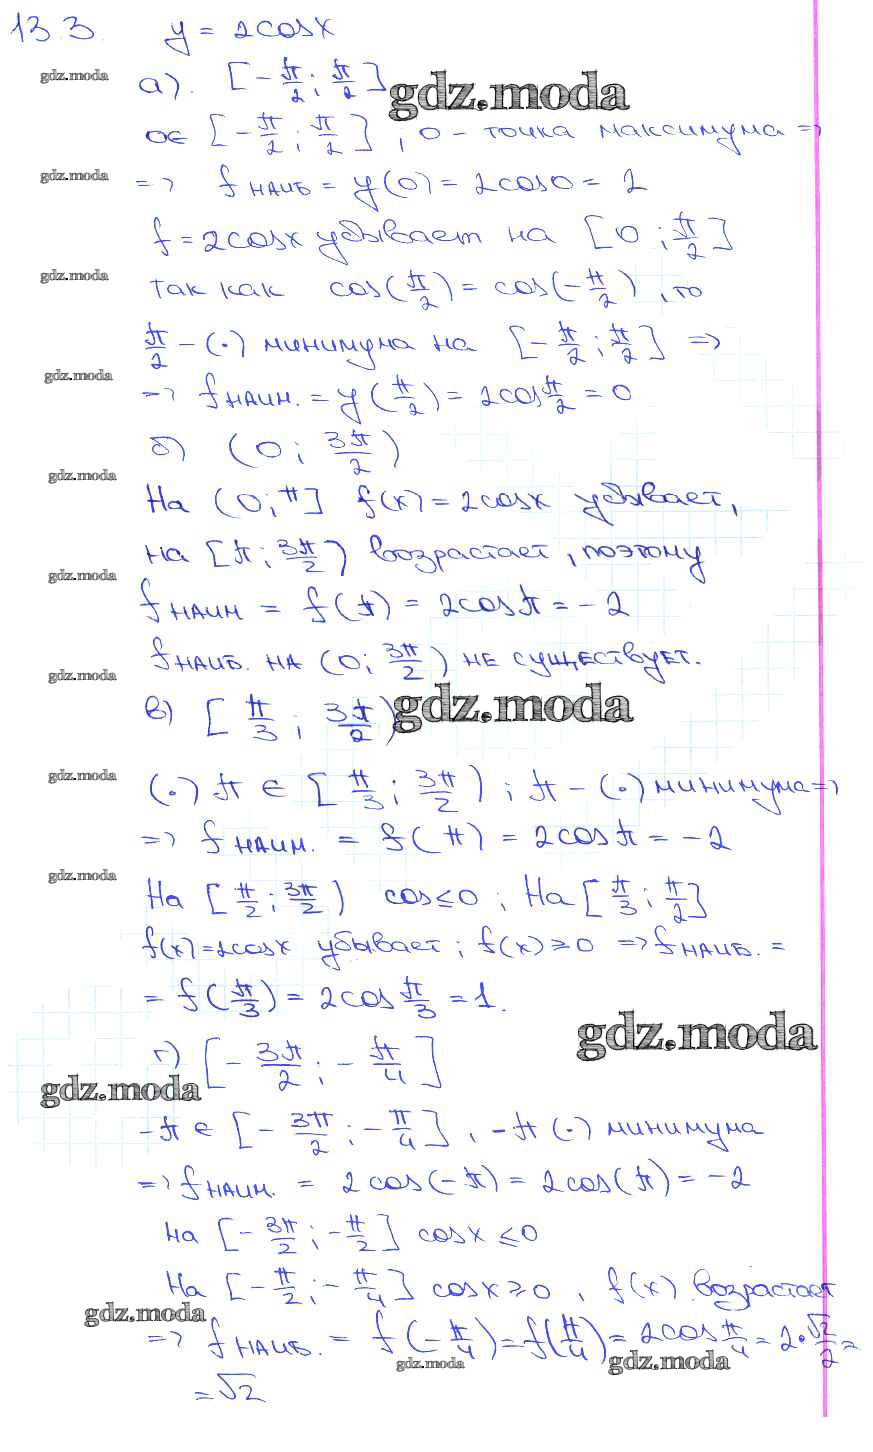 13.3. y = 2cosx
gdz.moda а). [-π/2; π/2] gdz.moda
0∈ [-π/2; π/2]; 0 - точка максимума =>
gdz.moda => fнаиб = y(0) = 2cos0 = 2
f = 2cosx убывает на [0; π/2]
gdz.moda так как cos(π/2) = cos(-π/2), то
π/2 - (·) минимума на [-π/2; π/2] =>
gdz.moda => fнаим. = y(π/2) = 2cosπ/2 = 0
б) (0; 3π/2)
gdz.moda На (0; π] f(x) = 2cosx убывает,
на [π; 3π/2) возрастает, поэтому
gdz.moda fнаим = f(π) = 2cosπ = -2
fнаиб. на (0; 3π/2) не существует.
gdz.moda в) [π/3; 3π/2) gdz.moda
gdz.moda (·) π ∈ [π/3; 3π/2); π - (·) минимума =>
=> fнаим. = f(π) = 2cosπ = -2
gdz.moda На [π/2; 3π/2) cos≤0; На [π/3; π/2]
f(x) = 2cosx убывает; f(x) ≥ 0 => fнаиб. =
= f(π/3) = 2cos π/3 = 1.
gdz.moda
г) [-3π/2; -π/4]
gdz.moda
-π ∈ [-3π/2; -π/4], -π (·) минимума
=> fнаим. = 2cos(-π) = 2cos(π) = -2
на [-3π/2; -π/2] cosx ≤ 0
На [-π/2; -π/4] cosx ≥ 0, f(x) возрастает
gdz.moda
=> fнаиб. = f(-π/4) = f(π/4) = 2cos π/4 = 2·√2/2 =
gdz.moda gdz.moda
= √2